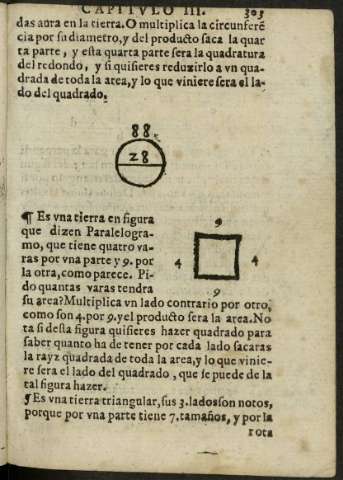 CAPITVLO III. 303
das aura en la tierra. O multiplica la circunferē
cia por su diametro, y del producto saca la quar
ta parte, y esta quarta parte sera la quadratura
del redondo, y si quisieres reduzirlo a vn qua-
drada de toda la area, y lo que viniere sera el la
do del quadrado.
88
28
¶ Es vna tierra en figura
que dizen Paralelogra-
mo, que tiene quatro va-
ras por vna parte y 9. por
la otra, como parece. Pi-
do quantas varas tendra
9
4 4
9
su area? Multiplica vn lado contrario por otro,
como son 4. por 9. y el producto sera la area. No
ta si desta figura quisieres hazer quadrado para
saber quanto ha de tener por cada lado sacaras
la rayz quadrada de toda la area, y lo que vinie-
re sera el lado del quadrado, que se puede de la
tal figura hazer.
¶ Es vna tierra triangular, sus 3. lados son notos,
porque por vna parte tiene 7. tamaños, y por la
rota